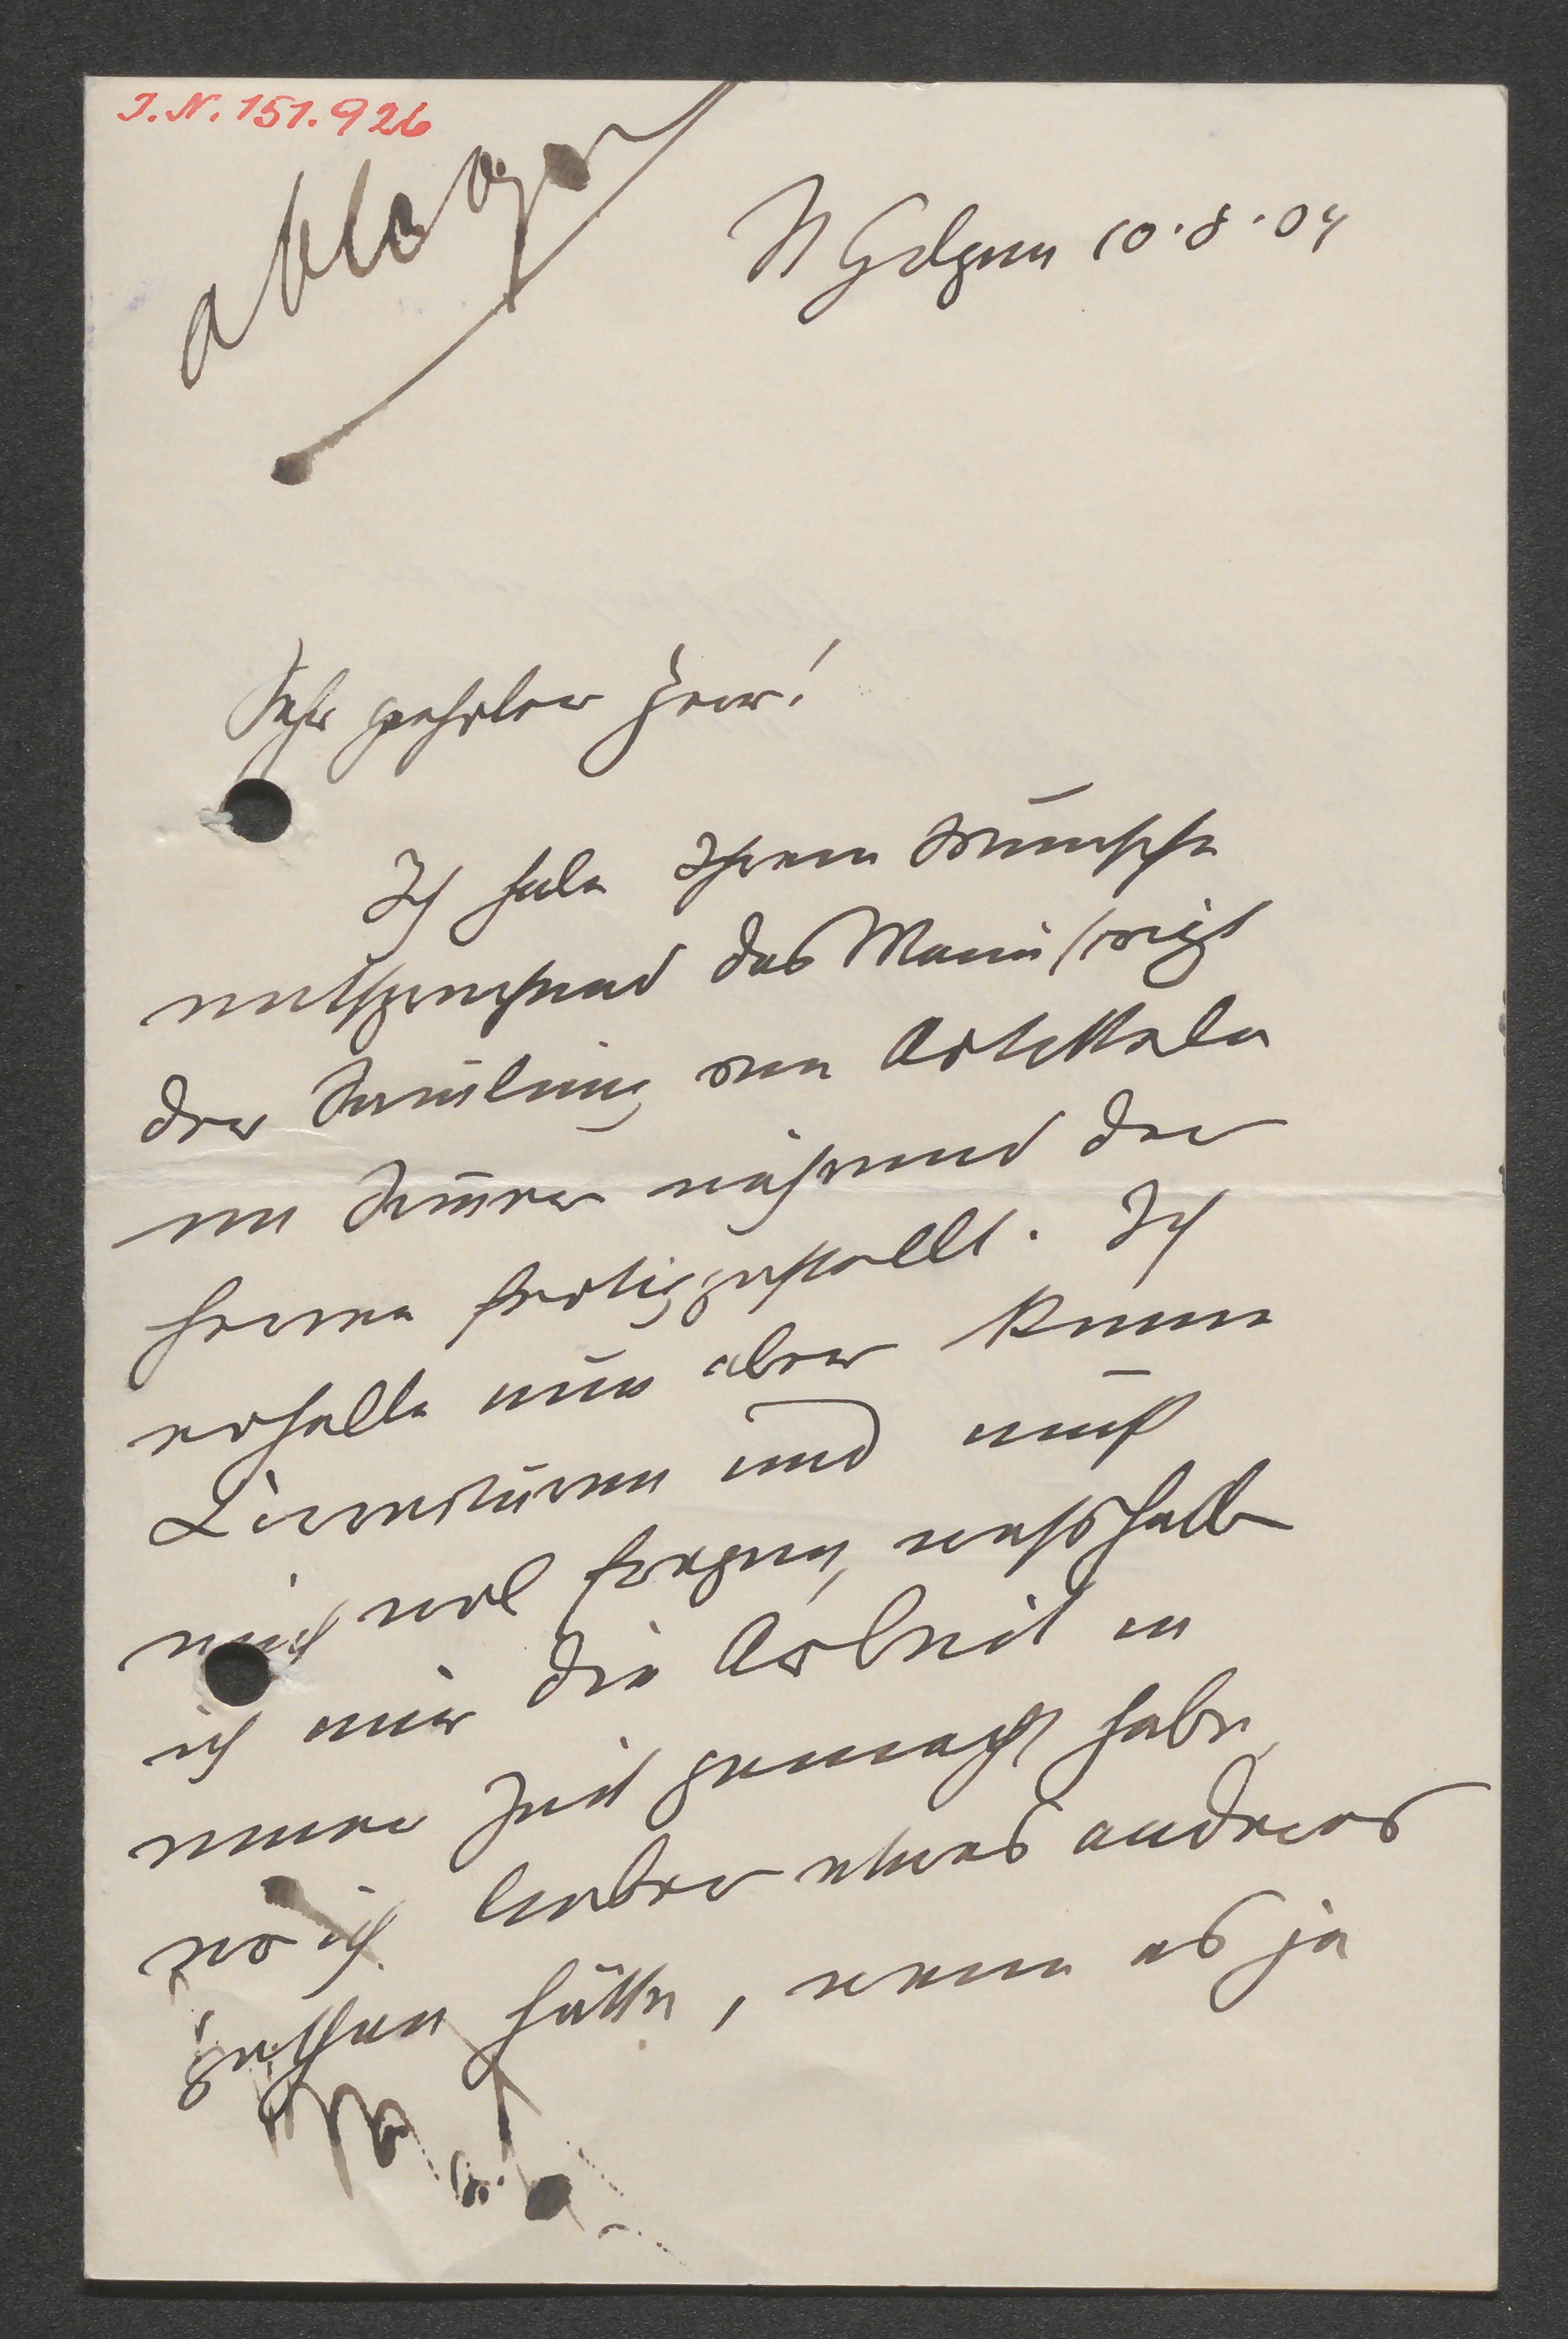 I. N. 151.926
St Gilgen 10.8.04
Sehr geehrter Herr!
Ich habe Ihrem Wunsche
entsprechend das Manuscript
der Sammlung von
während der
Ferien fertiggestellt. Ich
erhalte nun aber keine
Correcturen und muß
mich wol fragen, weßhalb
ich mir die Arbeit in
einer Zeit gemacht habe,
wo ich lieber etwas anderes
gethan hätte, wenn es ja